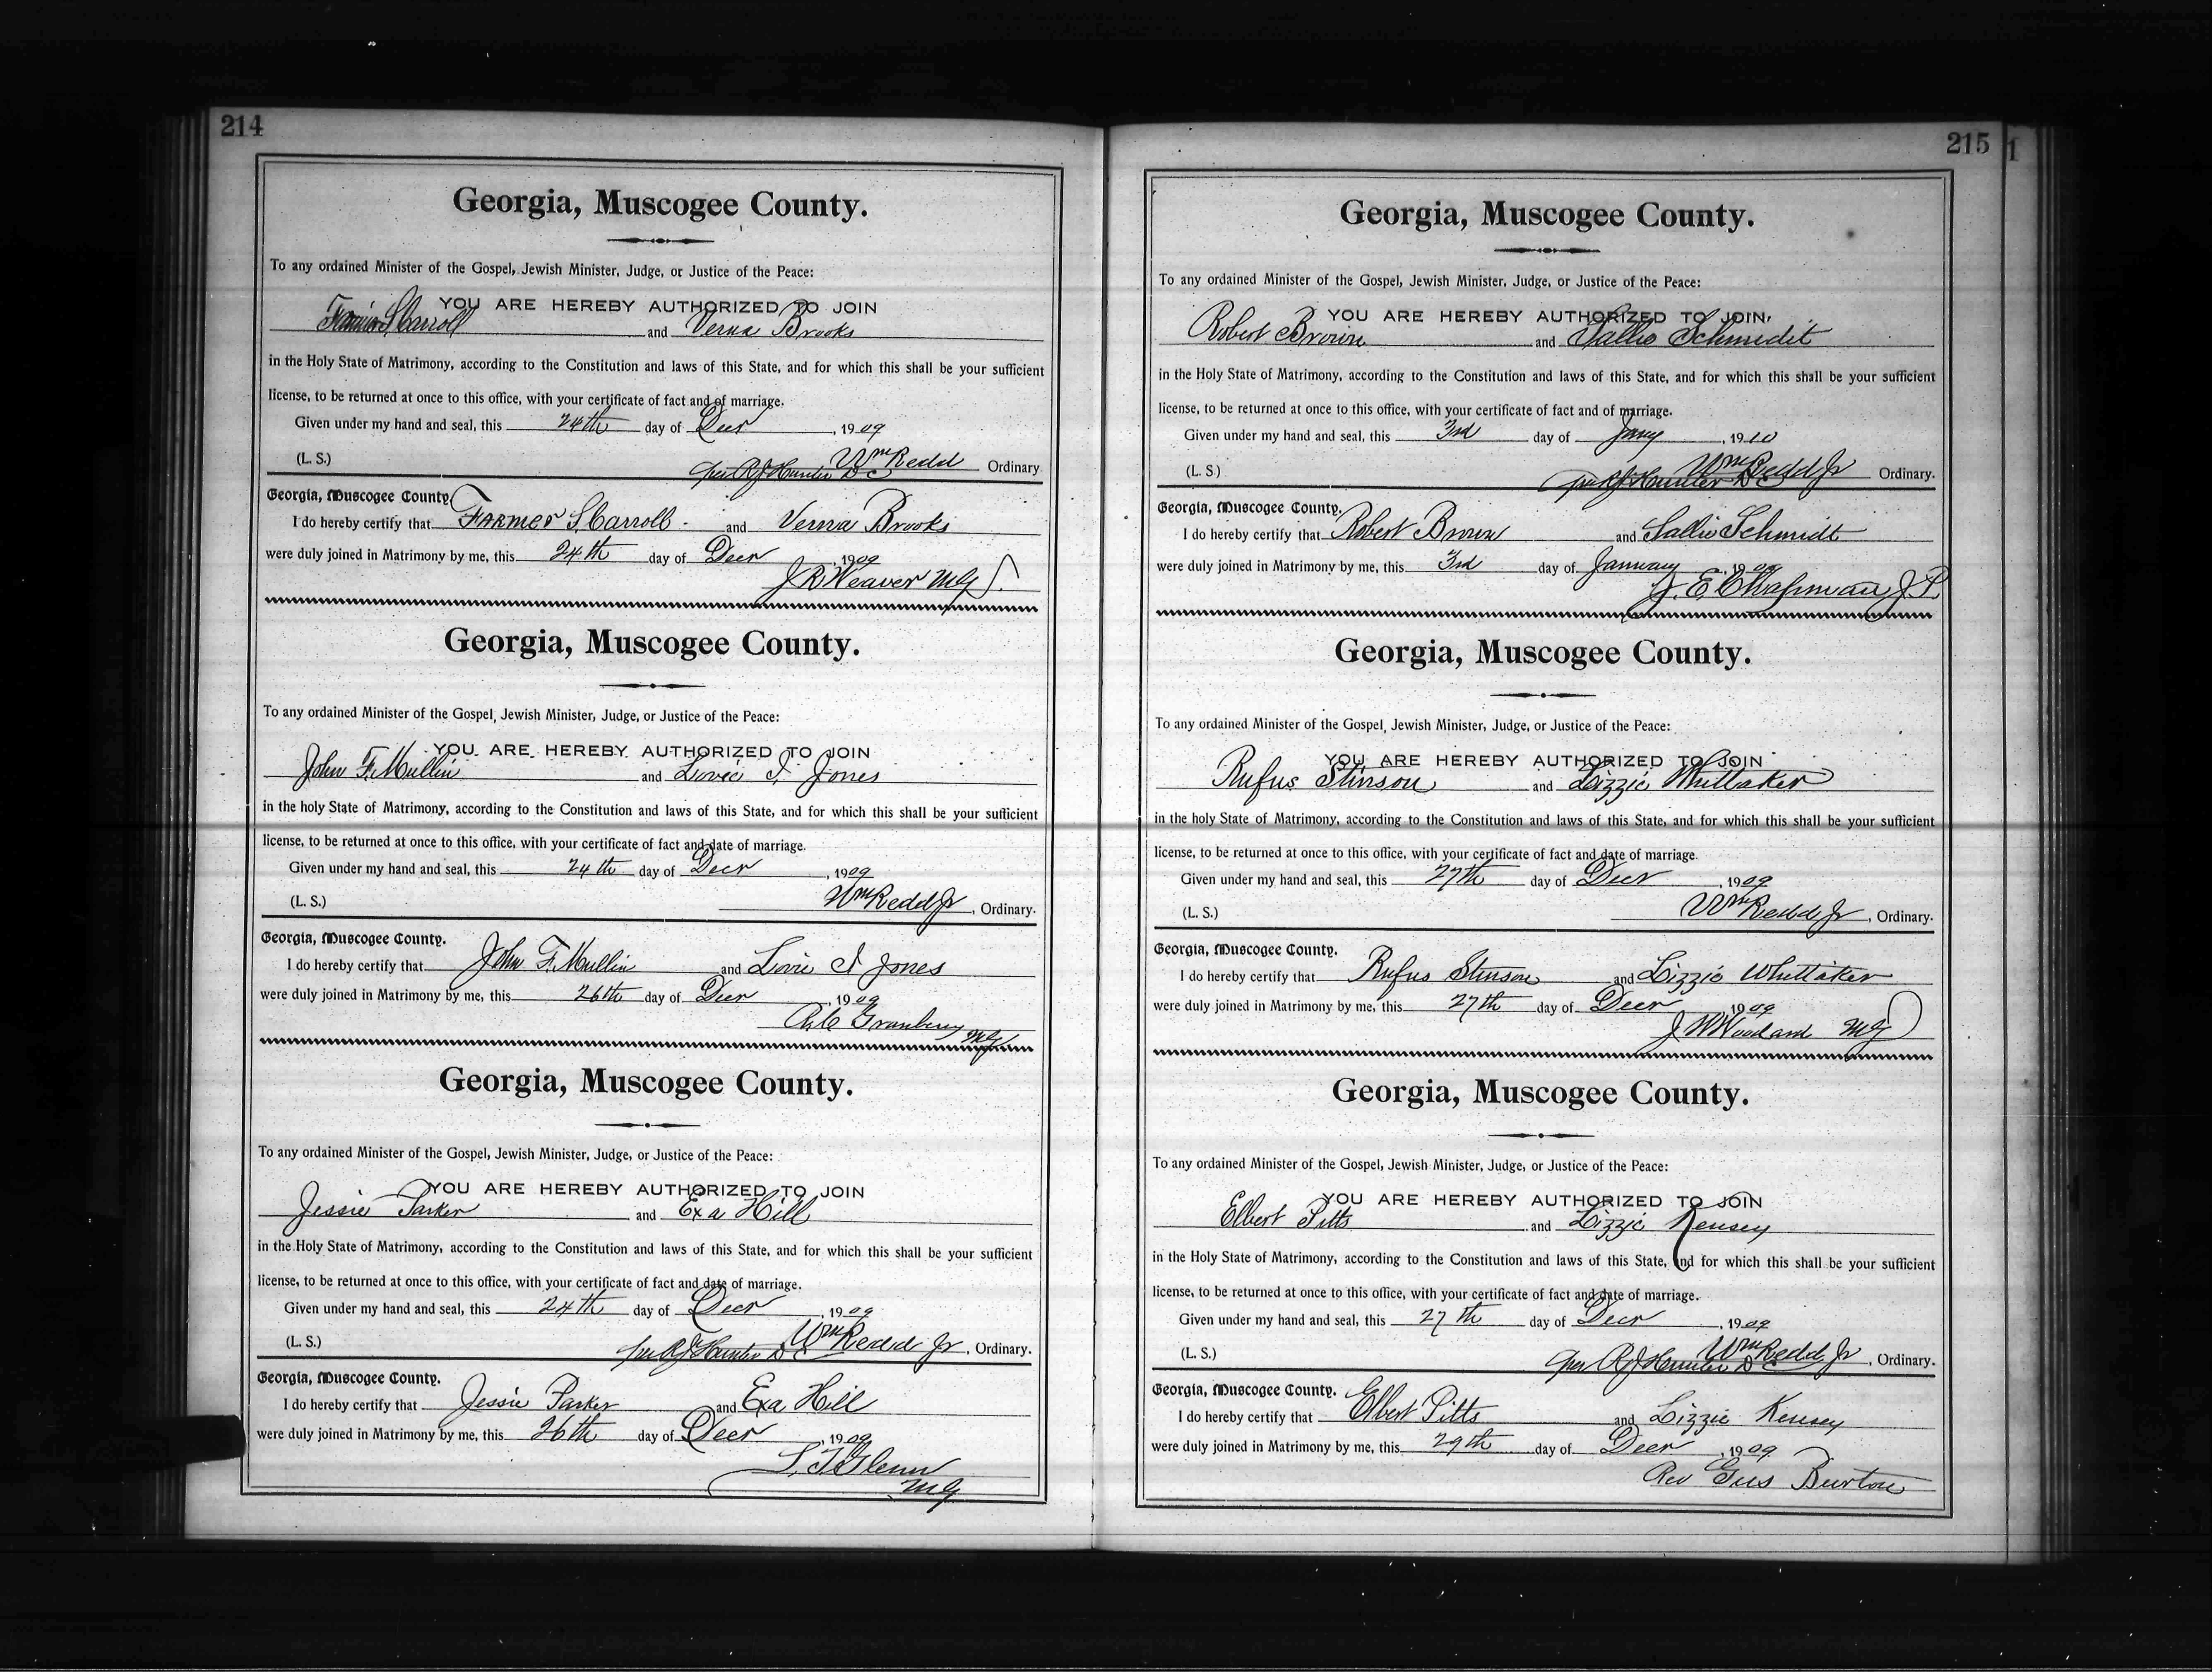 214
Georgia, Muscogee County.
To any ordained Minister of the Gospel, Jewish Minister, Judge, or Justice of the Peace:
YOU ARE HEREBY AUTHORIZED TO JOIN
S. Carroll and Verna Brooks
in the Holy State of Matrimony, according to the Constitution and laws of this State, and for which this shall be your sufficient
license, to be returned at once to this office, with your certificate of fact and of marriage.
Given under my hand and seal, this 24th day of Decr, 1909
Wm Redd
(L. S.) per R J Hunter D C Ordinary
Georgia, Muscogee County.
I do hereby certify that Farmer S. Carroll and Verna Brooks
were duly joined in Matrimony by me, this 24th day of Decr, 1909
J R Weaver M G
Georgia, Muscogee County.
To any ordained Minister of the Gospel, Jewish Minister, Judge, or Justice of the Peace:
YOU ARE HEREBY AUTHORIZED TO JOIN
John F. Mullin and Lovie I Jones
in the holy State of Matrimony, according to the Constitution and laws of this State, and for which this shall be your sufficient
license, to be returned at once to this office, with your certificate of fact and date of marriage.
Given under my hand and seal, this 24th day of Decr, 1909
(L. S.) Wm Redd Jr, Ordinary.
Georgia, Muscogee County.
I do hereby certify that John F. Mullin and Lovie I Jones
were duly joined in Matrimony by me, this 26th day of Decr, 1909
Granbury
M G
Georgia, Muscogee County.
To any ordained Minister of the Gospel, Jewish Minister, Judge, or Justice of the Peace:
YOU ARE HEREBY AUTHORIZED TO JOIN
Jessie Parker and Exa Hill
in the Holy State of Matrimony, according to the Constitution and laws of this State, and for which this shall be your sufficient
license, to be returned at once to this office, with your certificate of fact and date of marriage.
Given under my hand and seal, this 24th day of Decr, 1909
Wm Redd Jr
(L. S.) per R J Hunter D C, Ordinary.
Georgia, Muscogee County.
I do hereby certify that Jessie Parker and Exa Hill
were duly joined in Matrimony by me, this 26th day of Decr, 1909
Glenn
M G
215
Georgia, Muscogee County.
To any ordained Minister of the Gospel, Jewish Minister, Judge, or Justice of the Peace:
YOU ARE HEREBY AUTHORIZED TO JOIN
Robert Brown and Sallie Schmedit
in the Holy State of Matrimony, according to the Constitution and laws of this State, and for which this shall be your sufficient
license, to be returned at once to this office, with your certificate of fact and of marriage.
Given under my hand and seal, this 3rd day of Jany, 1910
Wm Redd Jr
(L. S.) per R J Hunter D C Ordinary.
Georgia, Muscogee County.
I do hereby certify that Robert Brown and Sallie Schmidt
were duly joined in Matrimony by me, this 3rd day of January, 19
J. E. Chapman J. P.
Georgia, Muscogee County.
To any ordained Minister of the Gospel, Jewish Minister, Judge, or Justice of the Peace:
YOU ARE HEREBY AUTHORIZED TO JOIN
Rufus Stinson and Lizzie Whittaker
in the holy State of Matrimony, according to the Constitution and laws of this State, and for which this shall be your sufficient
license, to be returned at once to this office, with your certificate of fact and date of marriage.
Given under my hand and seal, this 27th day of Decr, 1909
(L. S.) Wm Redd Jr, Ordinary.
Georgia, Muscogee County.
I do hereby certify that Rufus Stinson and Lizzie Whittaker
were duly joined in Matrimony by me, this 27th day of Decr, 1909
J W Woodard M G
Georgia, Muscogee County.
To any ordained Minister of the Gospel, Jewish Minister, Judge, or Justice of the Peace:
YOU ARE HEREBY AUTHORIZED TO JOIN
Elbert Pitts and Lizzie Kensey
in the Holy State of Matrimony, according to the Constitution and laws of this State, and for which this shall be your sufficient
license, to be returned at once to this office, with your certificate of fact and date of marriage.
Given under my hand and seal, this 27th day of Decr, 1909
Wm Redd Jr
(L. S.) per R J Hunter D C, Ordinary.
Georgia, Muscogee County.
I do hereby certify that Elbert Pitts and Lizzie Kensey
were duly joined in Matrimony by me, this 29th day of Decr, 1909
Rev Gus Burton